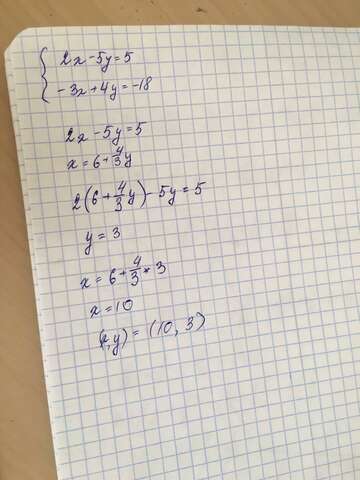 { 2x-5y=5
-3x+4y=-18
2x-5y=5
x=6+4/3y
2(6+4/3y)-5y=5
y=3
x=6+4/3*3
x=10
(x,y)=(10,3)